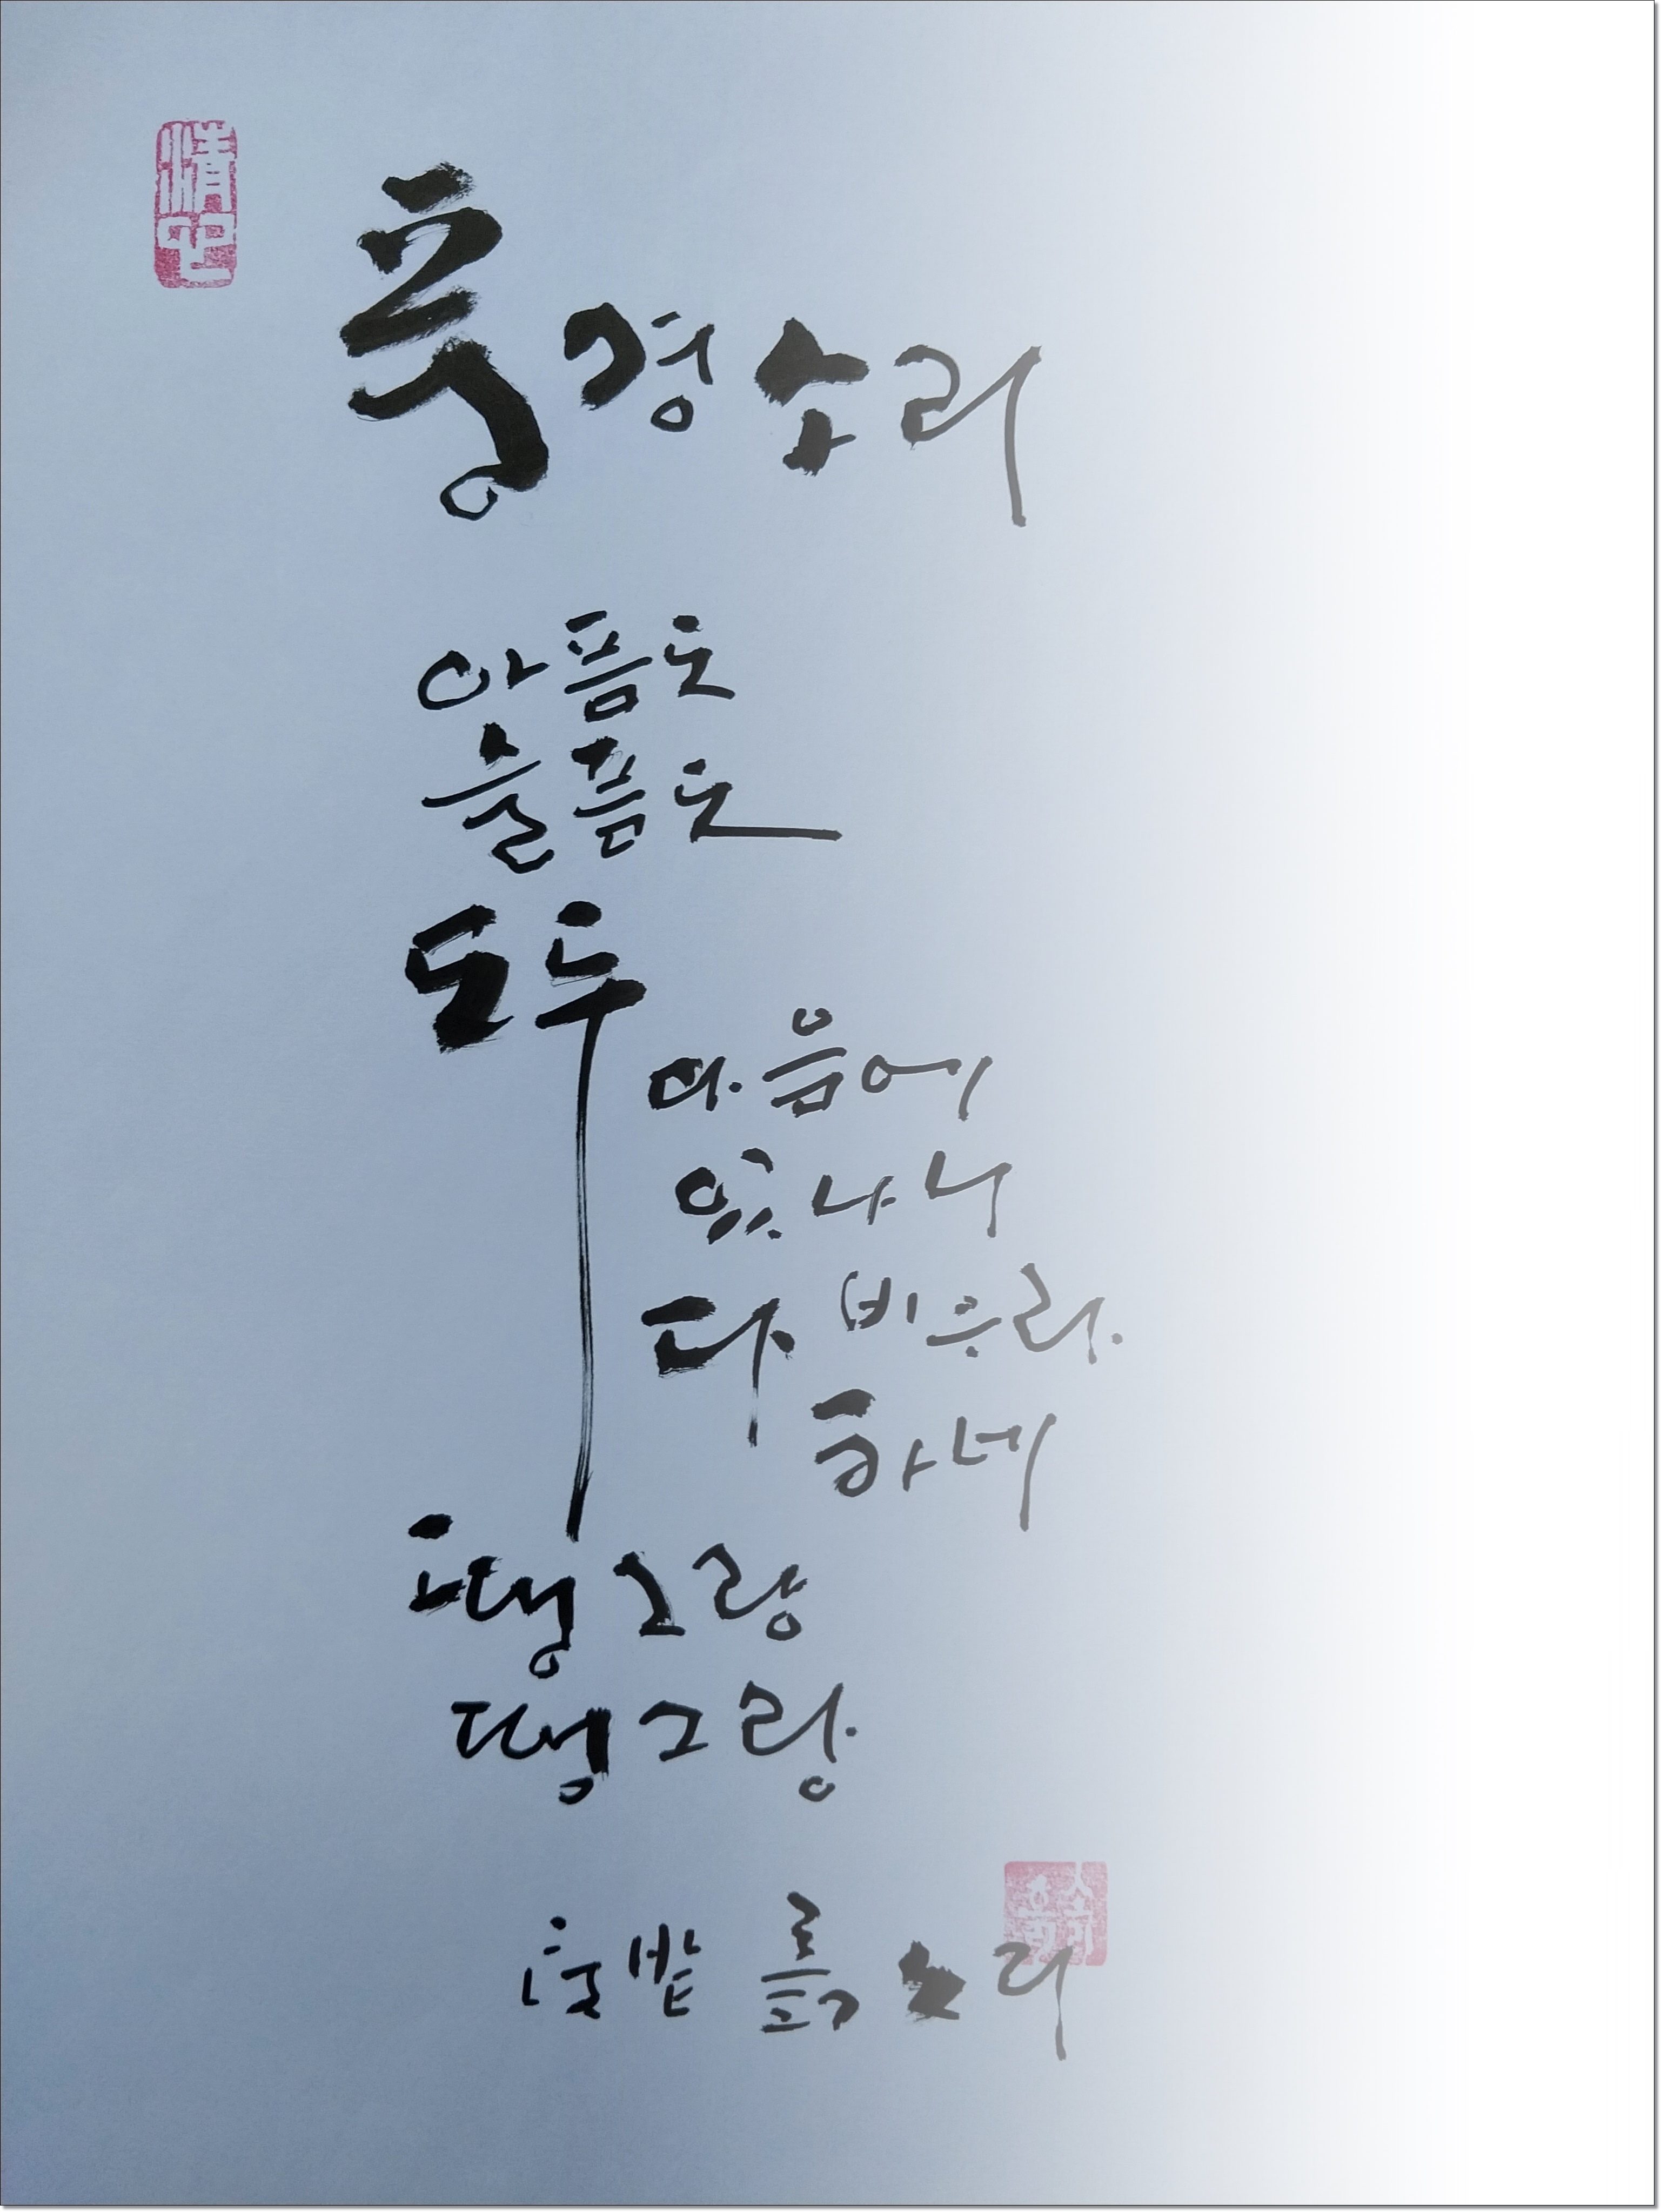 풍경소리
아픔도
슬픔도
모두
마음에
있나니
다 비우라
하네
땡그랑
땡그랑
흙소리